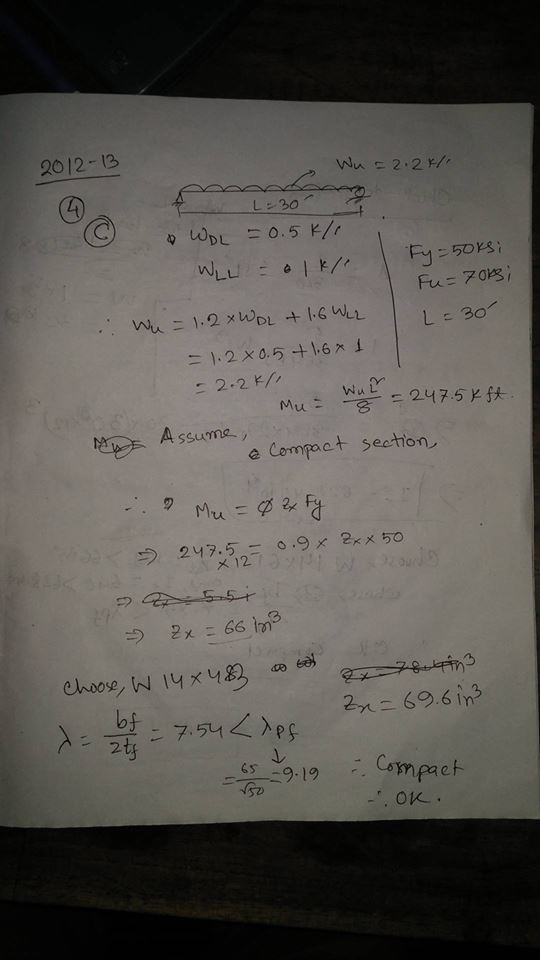 2012-13
Wu = 2.2 k/'
L = 30'
4
C
WDL = 0.5 k/'
WLL = 1 k/'
Fy = 50 ksi
Fu = 70 ksi
L = 30'
∴ Wu = 1.2 × WDL + 1.6 WLL
= 1.2 × 0.5 + 1.6 × 1
= 2.2 k/'
Mu = WuL²/8 = 247.5 k ft.
Assume,
Compact section,
∴ Mu = Ø Zx Fy
⇒ 247.5 × 12 = 0.9 × Zx × 50
⇒ Zx = 66 in³
choose, W 14 × 43
Zx = 69.6 in³
λ = bf/2tf = 7.54 < λpf
↓
= 65/√50 = 9.19
∴ Compact
∴ OK.